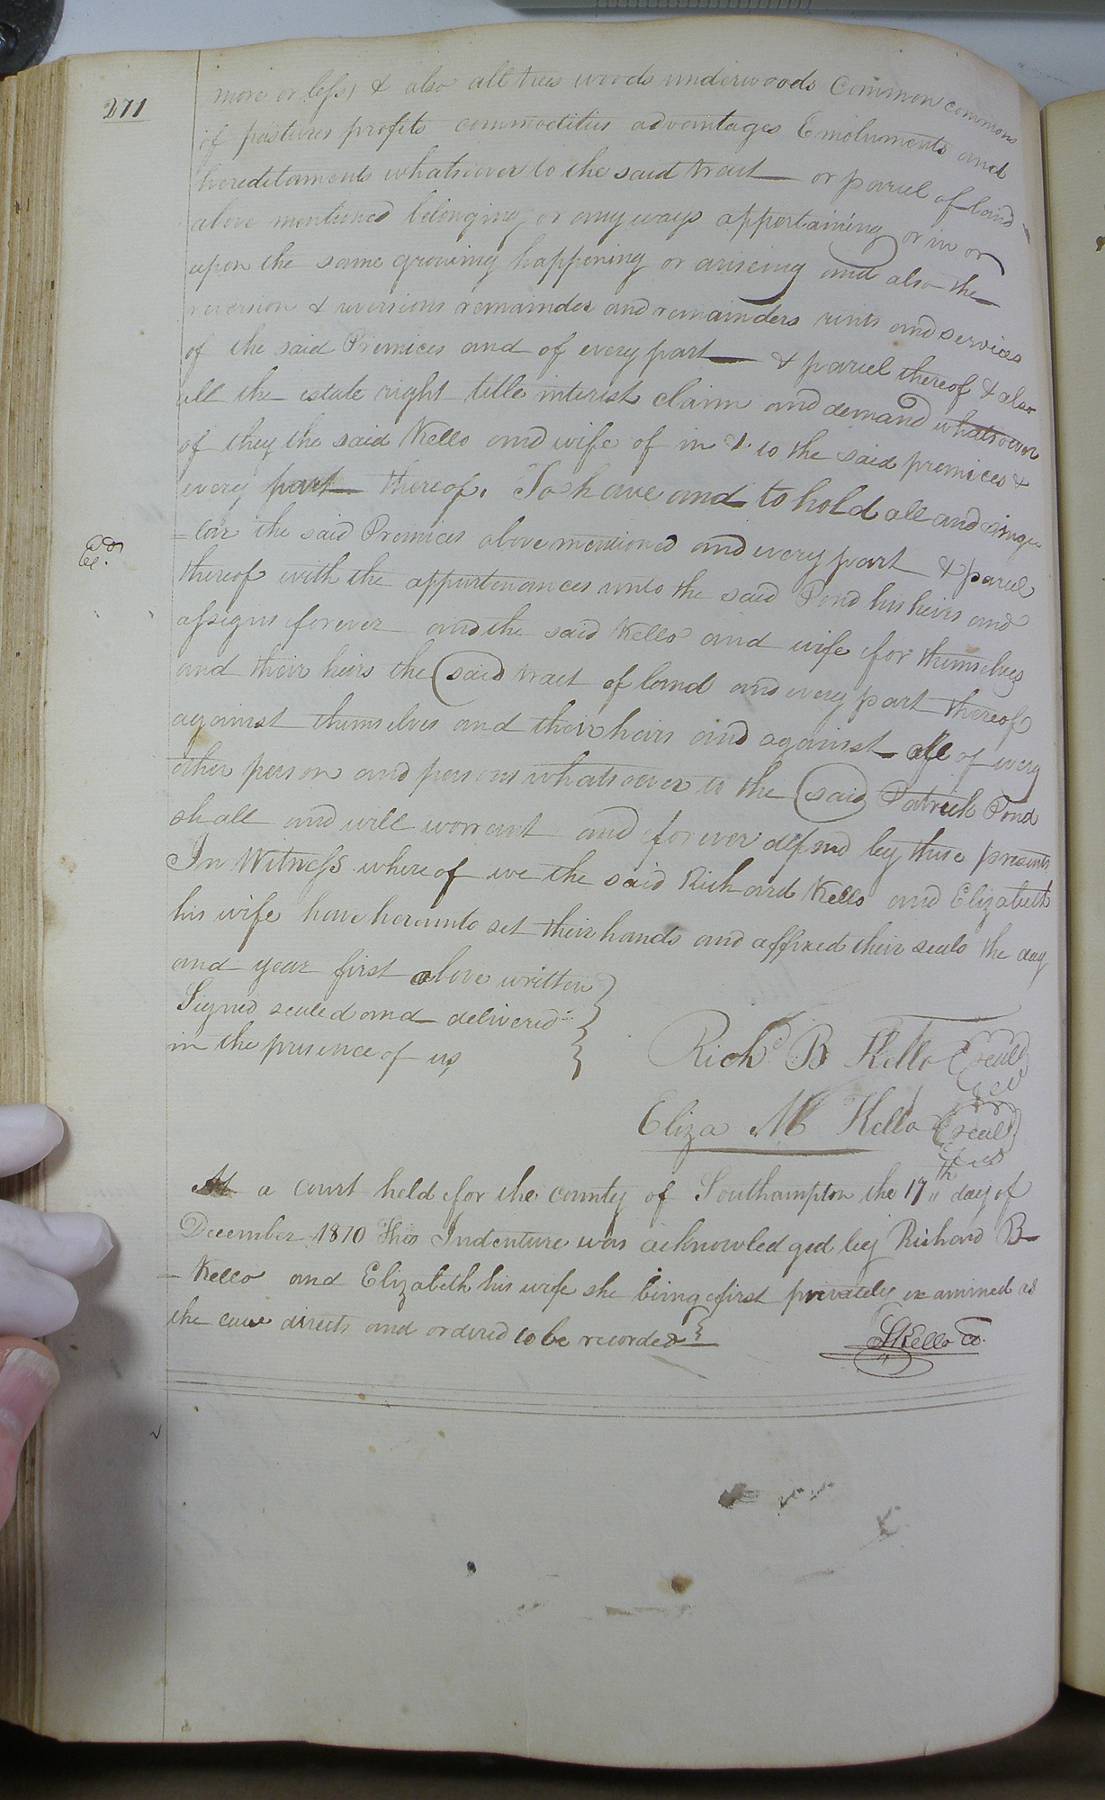 271
more or less, & also all trees woods underwoods Common commons
of pastures profits commodities advantages Emoluments and
hereditaments whatsoever to the said tract or parcel of land
above mentioned belonging or any ways appertaining or in or
upon the same growing happening or ariseing and also the
reversion & reversions remainder and remainders rents and services
of the said Premices and of every part & parcel thereof & also
all the estate right title interest claim and demand whatsoever
of they the said Kello and wife of in & to the said premices &
every part thereof. To have and to hold all and singu
=lar the said Premices above mentioned and every part & parcel
thereof with the appurtenances unto the said Pond his heirs and
assigns forever and the said Kello and wife for themselves
and their heirs the said tract of land and every part thereof
against themselves and their heirs and against all of every
other person and persons whatsoever to the said Patrick Pond
shall and will warrant and forever defend by these presents
In Witness whereof we the said Richard Kello and Elizabeth
his wife have hereunto set their hands and affixed their seals the day
and year first above written
Signed sealed and delivered
in the presence of us
Richd B Kello seal
Eliza M Kello seal
At a court held for the county of Southampton the 17th day of
December 1810 This Indenture was acknowledged by Richard B
- Kello and Elizabeth his wife she being first privately examined as
the law directs and ordered to be recorded
SKello Cc.